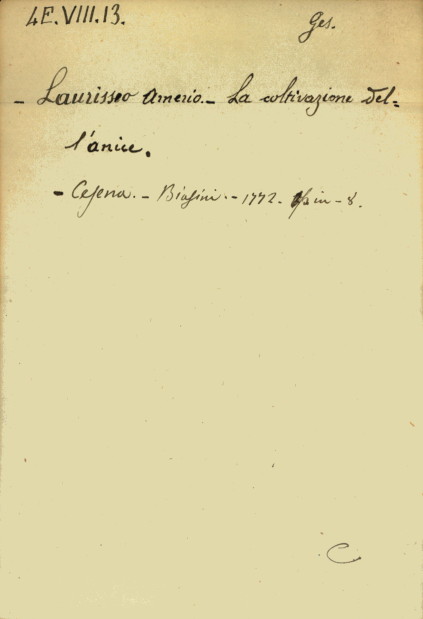 4E.VIII.13.
Ges.
- Laurisseo Amerio.- La coltivazione del=
l'anice.
- Cesena. - Biasini. - 1772. in-8.
C